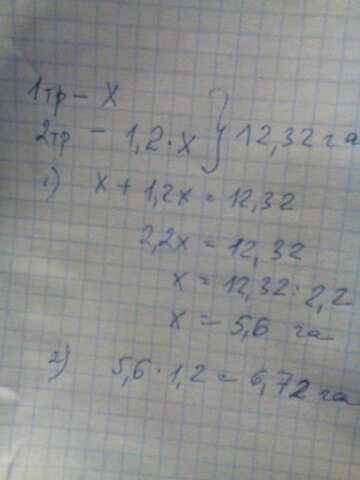 1тр - х
2тр - 1,2·х } 12,32 га
1) х + 1,2х = 12,32
2,2х = 12,32
х = 12,32 : 2,2
х = 5,6 га
2) 5,6 · 1,2 = 6,72 га